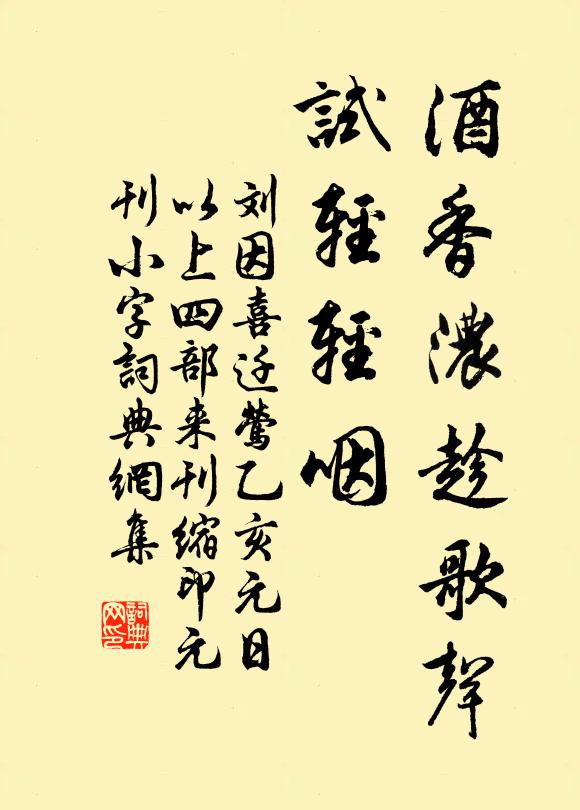 酒香濃趁歌聲
試輕輕咽
刘因喜迁鶯乙亥元日
以上四部来刊縮印元
刊小字詞典網集
詞典网印